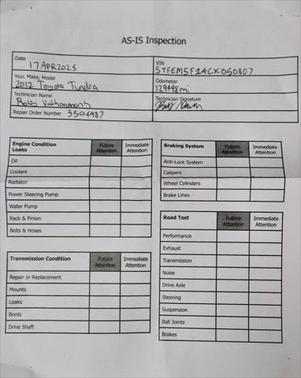 AS-IS Inspection
Date
17APR2025
VIN
5TFEM5F14CX050807
Year, Make, Model
2012 Toyota Tundra
Odometer
129448mi
Technician Name
Technician Signature
Repair Order Number 3504987
Engine Condition
Leaks
Future
Attention
Immediate
Attention
Oil
Coolant
Radiator
Power Steering Pump
Water Pump
Rack & Pinion
Belts & Hoses
Transmission Condition
Future
Attention
Immediate
Attention
Repair or Replacement
Mounts
Leaks
Boots
Drive Shaft
Braking System
Future
Attention
Immediate
Attention
Anti-Lock System
Calipers
Wheel Cylinders
Brake Lines
Road Test
Future
Attention
Immediate
Attention
Performance
Exhaust
Transmission
Noise
Drive Axle
Steering
Suspension
Ball Joints
Brakes